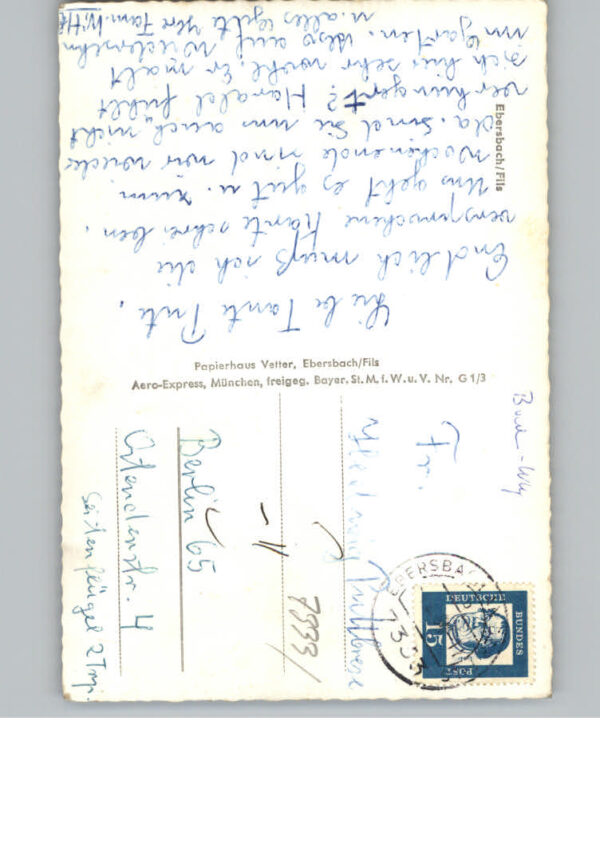 Liebe Tante Pute,
Endlich muß ich die
versprochene Karte schreiben.
Uns geht es gut u. zum
Wochenende sind wir wieder
da. Sind Sie uns auch nicht
verhungert? Harald fühlt
sich hier sehr wohl. Er malt
im Garten. Also auf Wiedersehn
u. alles Gute Ihre Fam.
Ebersbach/Fils
Papierhaus Vetter, Ebersbach/Fils
Aero-Express, München, freigeg. Bayer. St. M. f. W. u. V. Nr. G 1/3
EBERSBA
733
DEUTSCHE
BUNDES
POST
15
Fr.
Berlin 65
Ostenderstr. 4
Seitenflügel 2 Trp.
7333/